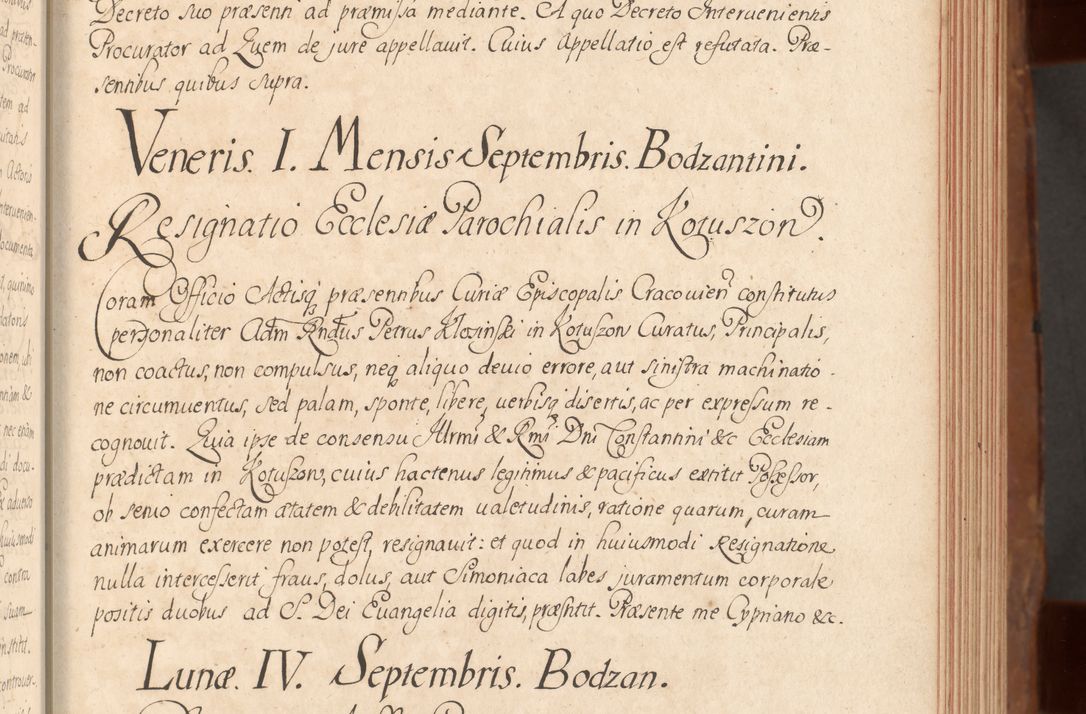 Decreto suo præsenti ad præmissa mediante. A quo Decreto Intervenientis
Procurator ad Quem de jure appellavit. Cuius Appellatio est refutata. Præ-
sentibus quibus supra.
Veneris. I. Mensis Septembris. Bodzantini.
Resignatio Ecclesiæ Parochialis in Kotuszon.
Coram Officio Actisq præsentibus Curiæ Episcopalis Cracovien constitutus
personaliter Adm Rndus Petrus Klosinski in Kotuszow Curatus, Principalis,
non coactus, non compulsus, neq aliquo devio errore, aut sinistra machinatio-
ne circumventus, sed palam, sponte, libere, verbisq disertis, ac per expressum re-
cognovit. Quia ipse de consensu Illrmi & Rmi Dni Constantini &c Ecclesiam
prædictam in Kotuszow, cuius hactenus legitimus & pacificus extitit Possessor,
ob senio confectam ætatem & debilitatem valetudinis, ratione quarum, curam
animarum exercere non potest, resignavit: et quod in huiusmodi Resignatione
nulla intercesserit fraus, dolus, aut Simoniaca labes juramentum corporale
positis duobus ad S. Dei Evangelia digitis, præstitit. Præsente me Cypriano &c.
Lunæ. IV. Septembris. Bodzan.